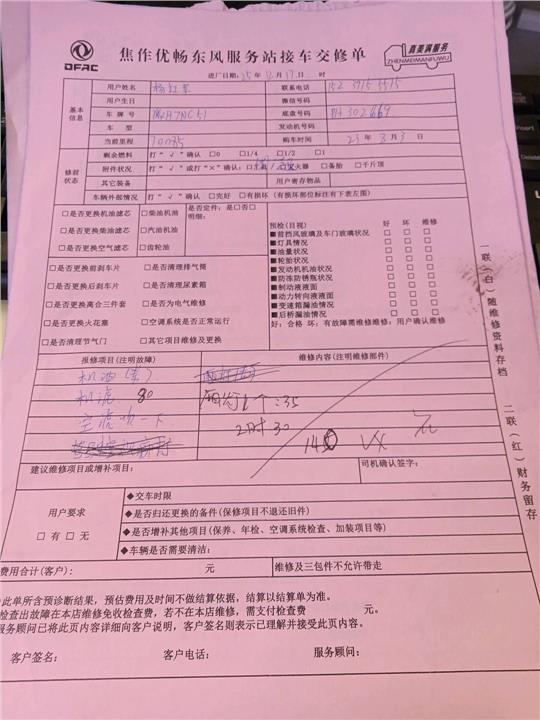 DFAC
焦作优畅东风服务站接车交修单
真美满服务
ZHENMEIMANFUWU
进厂日期：25年12月17日 时
基本信息
用户姓名
联系电话
用户生日
微信号码
车牌号
底盘号码 302669
车型
发动机号码
当前里程 70035
购车时间 23年3月3日
修前状态
剩余燃料 打“√”确认 □0 □1/4 □1/2 □1
附件状况 打“√”或打“×”确认：火器 □备胎 □千斤顶
其它装备
用户寄存物品
车辆外部情况 打“√”确认 □完好 □有损坏（有损坏部位标注有下表左图）
□是否更换机油滤芯 □柴油机油
□是否更换柴油滤芯 □汽油机油
□是否更换空气滤芯 □齿轮油
是否定件：是□否□
明细：
□是否更换前刹车片 □是否清理排气筒
□是否更换后刹车片 □是否清理尿素箱
□是否更换离合三件套 □是否为电气维修
□是否更换火花塞 □空调系统是否正常运行
□是否清理节气门 □其它项目维修及更换
预检(目视) 好 坏 维修
■前挡风玻璃及车门玻璃状况 □ □ □
■灯具情况 □ □ □
■油量状况 □ □ □
■轮胎状况 □ □ □
■发动机机油状况 □ □ □
■防冻防锈瓶状况 □ □ □
■制动液液面 □ □ □
■动力转向液液面 □ □ □
■变速箱漏油情况 □ □ □
■后桥漏油情况 □ □ □
好：合格 坏：有故障需维修维修：用户确认维修
报修项目(注明故障)
维修内容(注明维修部件)
机滤 80
1个=35
空滤吹一下
2时30
VX
元
建议维修项目或增补项目：
司机确认签字：
用户要求
□有 □无
◆交车时限
◆是否归还更换的备件(保修项目不退还旧件)
◆是否增补其他项目(保养、年检、空调系统检查、加装项目等)
◆车辆是否需要清洁：
费用合计(客户)： 元
维修及三包件不允许带走
此单所含预诊断结果，预估费用及时间不做结算依据，结算以结算单为准。
检查出故障在本店维修免收检查费，若不在本店维修，需支付检查费 元。
服务顾问已将此页内容详细向客户说明，客户签名则表示已理解并接受此页内容。
客户签名： 客户电话： 服务顾问：
一联（白）随维修资料存档
二联（红）财务留存